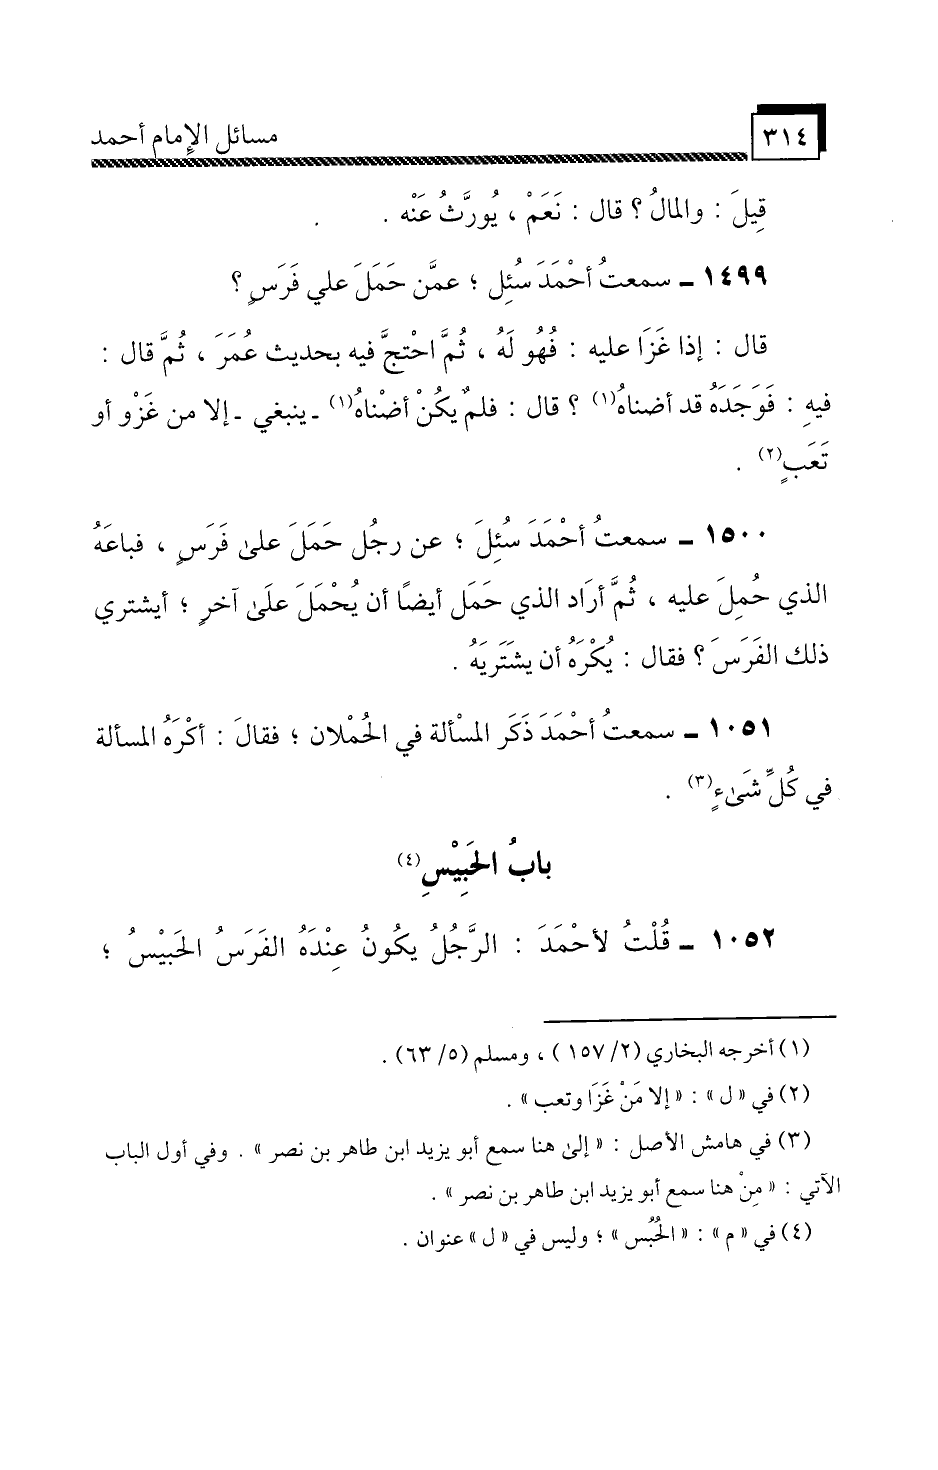 ٣١٤
مسائل الإمام أحمد
قِيلَ : والمالُ ؟ قال : نَعَمْ ، يُورَّثُ عَنْه .
١٤٩٩ ـ سمعتُ أحْمَدَ سُئِل ؛ عمَّن حَمَلَ علي فَرَسٍ ؟
قال : إذا غَزَا عليه : فُهُو لَهُ ، ثُمَّ احْتجَّ فيه بحديث عُمَرَ ، ثُمَّ قال :
فيهِ : فَوَجَدَهُ قد أضناهُ(١) ؟ قال : فلمْ يكُنْ أضْناهُ(١) ـ ينبغي ـ إلا من غَزْو أو
تَعَبٍ(٢) .
١٥٠٠ ـ سمعتُ أحْمَدَ سُئِلَ ؛ عن رجُل حَمَلَ علىٰ فَرَسٍ ، فباعَهُ
الذي حُمِلَ عليه ، ثُمَّ أرَاد الذي حَمَل أيضًا أن يُحْمَلَ علَىٰ آخرٍ ؛ أيشتري
ذلك الفَرَسَ ؟ فقال : يُكْرَهُ أن يشَتَريَهُ .
١٠٥١ ـ سمعتُ أحْمَدَ ذَكَر المسْألة في الحُمْلان ؛ فقالَ : أكْرَهُ المسألة
في كُلِّ شَىٰءٍ(٣) .
بابُ الحَبِيْسِ(٤)
١٠٥٢ ـ قُلْتُ لأحْمَدَ : الرَّجُلُ يكُونُ عِنْدَهُ الفَرَسُ الحَبيْسُ ؛
(١) أخرجه البخاري (٢/ ١٥٧) ، ومسلم (٥/ ٦٣) .
(٢) في « ل » : « إلا مَنْ غَزَا وتعب » .
(٣) في هامش الأصل : « إلىٰ هنا سمع أبو يزيد ابن طاهر بن نصر » . وفي أول الباب
الآتي : « مِنْ هنا سمع أبو يزيد ابن طاهر بن نصر » .
(٤) في « م » : « الحُبُس » ؛ وليس في « ل » عنوان .